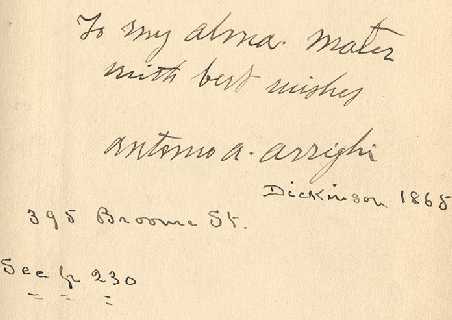 To my alma mater
with best wishes
Antonio A. Arrighi
Dickinson 1865
395 Broome St.
See p 230